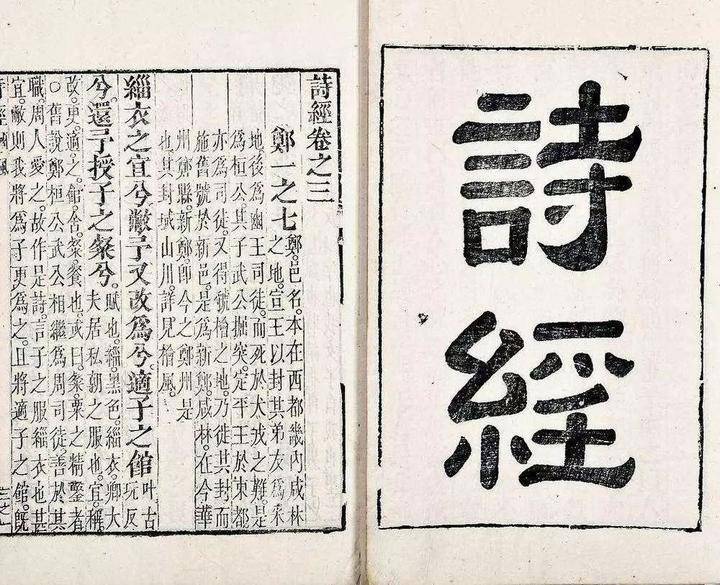 詩
經
詩經卷之三
鄭一之七
鄭。邑名。本在西都畿內咸林
之地。宣王以封其弟友爲采
地後爲幽王司徒。而死於犬戎之難。是
爲桓公。其子武公掘突。定平王於東都
亦爲司徒。又得虢檜之地。乃徙其封。而
施舊號於新邑。是爲新鄭。咸林。在今華
州鄭縣。新鄭即今之鄭州是
也。其封域山川。詳見檜風。
緇衣之宜兮。敝予又改爲兮。適子之館
叶古
玩反
兮。還予授子之粲兮。
賦也。緇。黑色。緇衣卿大
夫居私朝之服也。宜。稱。
改。更。適。之。館。舍。粲。餐也。或曰。粲。粟之精鑿者
○舊說鄭桓公武公。相繼爲周司徒。善於其
職。周人愛之。故作是詩。言子之服緇衣也甚
宜。敝則我將爲子更爲之。且將適子之館。既